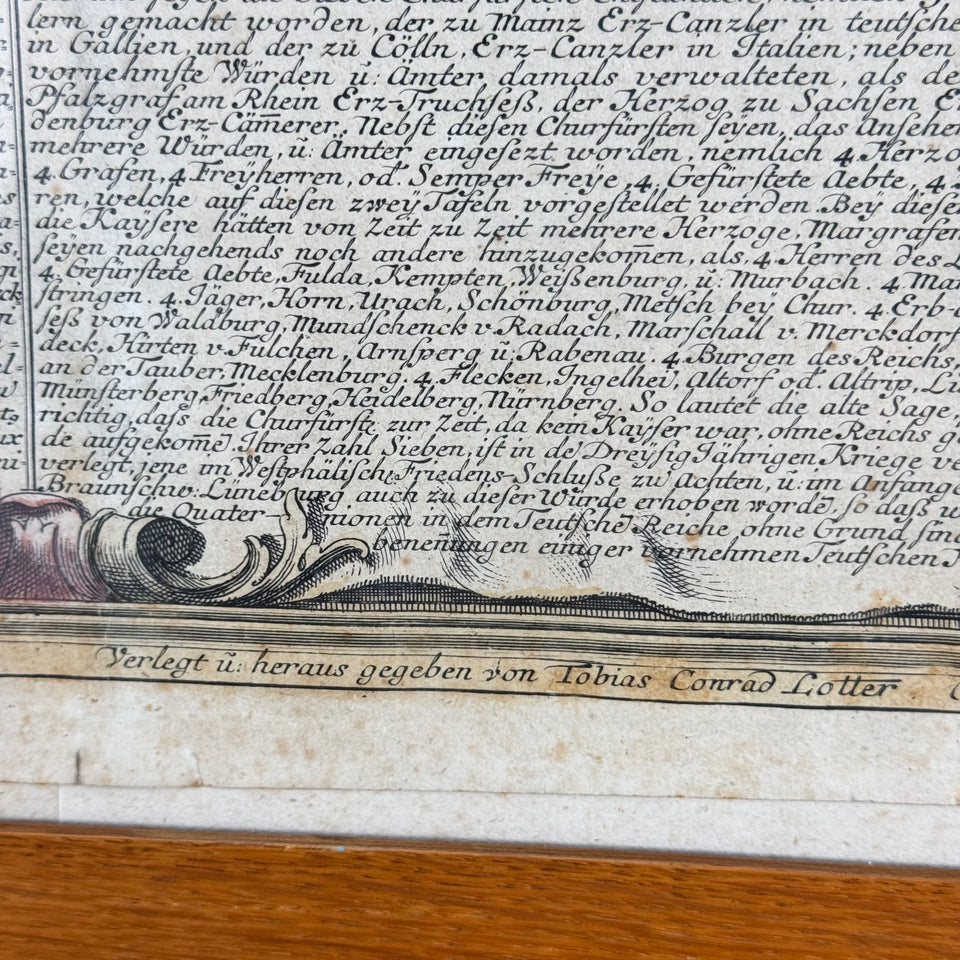 lern gemacht worden, der zu Mainz Erz-Canzler in teutsche
in Gallien, und der zu Cölln, Erz-Canzler in Italien; neben
vornehmste Würden ü: Ämter damals verwalteten, als de
Pfalzgraf am Rhein Erz-Truchseß, der Herzog zu Sachsen E
denburg Erz-Cäm̄erer. Nebst diesen Churfürsten seyen, das Ansehen
mehrere Würden, ü: Ämter eingesezt worden, nemlich 4. Herzo
4. Grafen, 4 Freÿherren, od. Semper Freÿe, 4. Gefürstete Aebte, 4.
ren, welche auf diesen zweÿ Tafeln vorgestellet werden. Bey diese
die Kaÿsere hätten von Zeit zu Zeit mehrere Herzoge, Margrafen
seyen nachgehends noch andere hinzugekom̄en, als, 4. Herren des
4. Gefürstete Aebte, Fulda, Kempten, Weißenburg, ü: Murbach. 4. Mar
stringen. 4. Jäger, Horn, Urach, Schönburg, Metsch bey Chur. 4. Erb-
seß von Waldburg, Mundschenck v. Radach, Marschall v. Merckdorf
deck, Hirten v. Fulchen, Arnsperg ü: Rabenau. 4. Burgen des Reichs,
an der Tauber, Mecklenburg. 4. Flecken, Ingelhei, Altorf od. Altrip, Li
Münsterberg, Friedberg, Heidelberg, Nürnberg. So lautet die alte Sage,
richtig, daß die Churfürste zur Zeit, da kein Kaÿser war, ohne Reichs
de aufgekom̄e. Ihrer Zahl Sieben, ist in de Dreÿsig Jährigen Kriege ve
verlegt, jene im Westphälisch Friedens-Schluße zu Achten, ü: im Anfange
Braunschw: Lüneburg auch zu dieser Würde erhoben worde, so daß
die Quater nionen in dem Teutsche Reiche ohne Grund sind
beneñungen einiger vornehmen Teutschen
Verlegt ü: heraus gegeben von Tobias Conrad Lotter